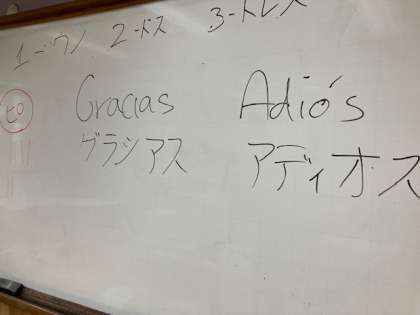 1-ウノ 2-ドス 3-トレス
Gracias Adiós
グラシアス アディオス